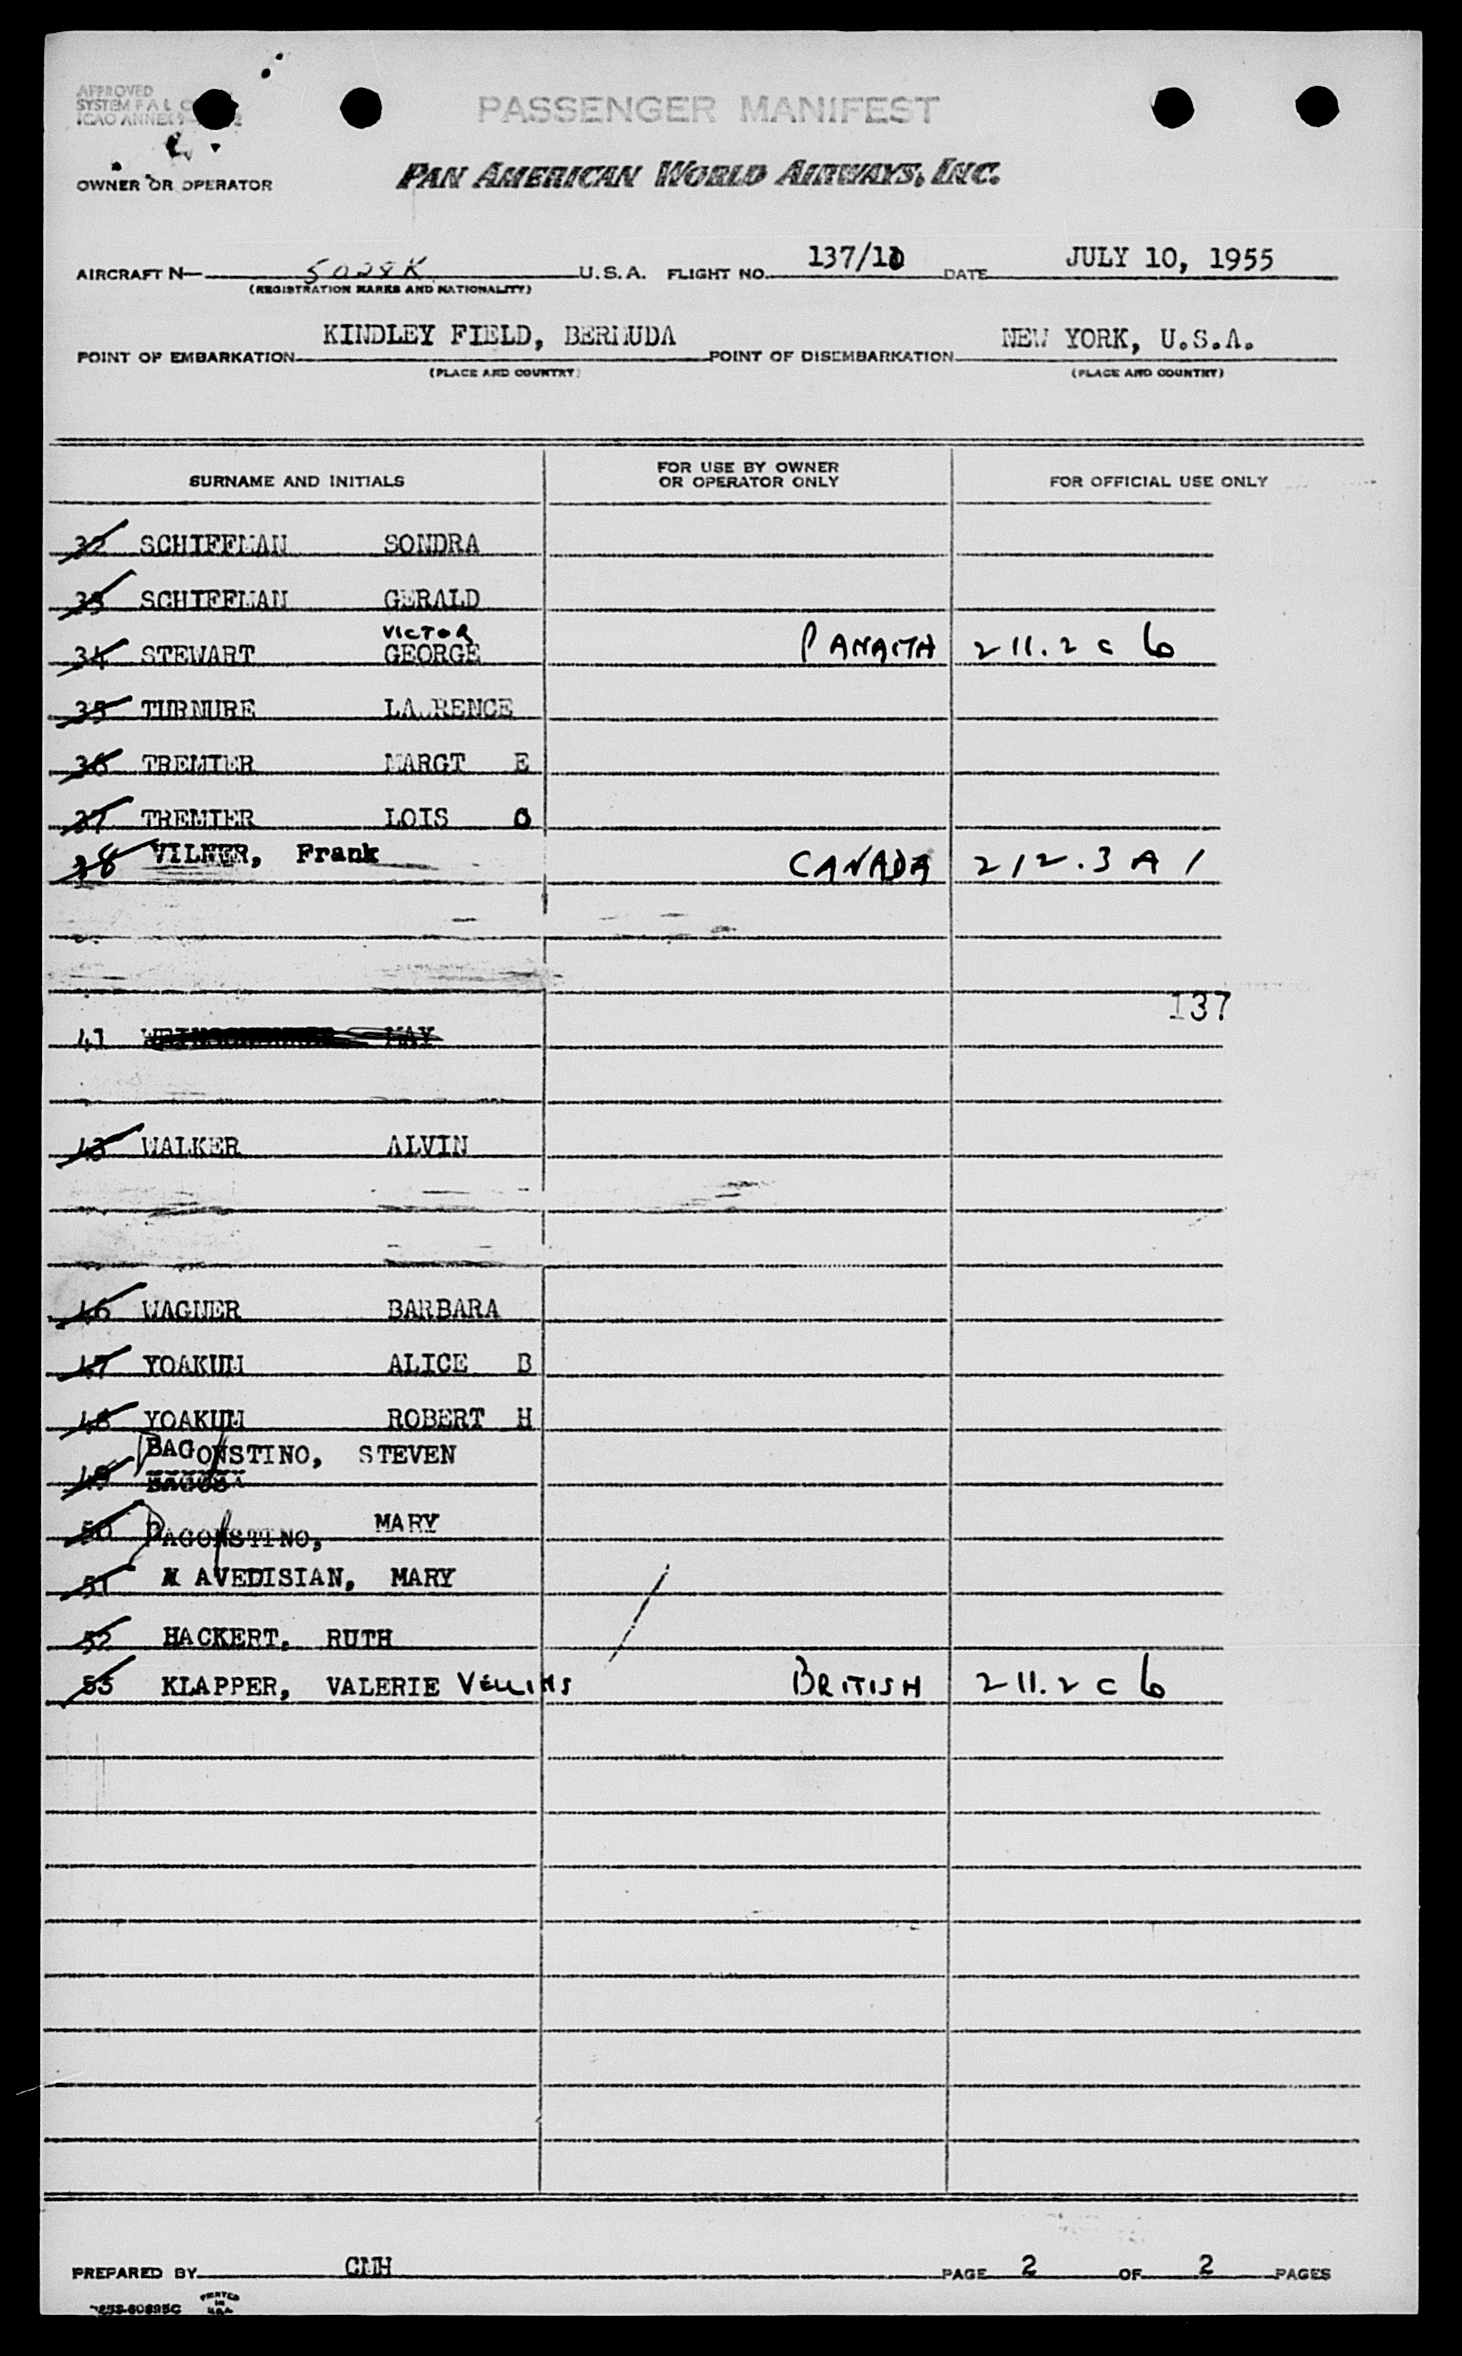 APPROVED
SYSTEM F A L
ICAO ANNEX 9
PASSENGER MANIFEST
OWNER OR OPERATOR PAN AMERICAN WORLD AIRWAYS, INC.
AIRCRAFT N— 5028K U.S.A. FLIGHT NO. 137/10 DATE JULY 10, 1955
(REGISTRATION MARKS AND NATIONALITY)
KINDLEY FIELD, BERMUDA NEW YORK, U.S.A.
POINT OF EMBARKATION POINT OF DISEMBARKATION
(PLACE AND COUNTRY) (PLACE AND COUNTRY)
SURNAME AND INITIALS FOR USE BY OWNER OR OPERATOR ONLY FOR OFFICIAL USE ONLY
32 SCHIFFMAN SONDRA
33 SCHIFFMAN GERALD
VICTOR
34 STEWART GEORGE 211.2 c 6
35 TURNURE LAWRENCE
36 TREMIER MARGT E
37 TREMIER LOIS
38 VILNER, Frank CANADA 212.3 A 1
137
41 MAY
43 WALKER ALVIN
46 WAGNER BARBARA
47 YOAKUM ALICE B
48 YOAKUM ROBERT H
49 BAGONSTINO, STEVEN
50 DAGONSTINO, MARY
51 AVEDISIAN, MARY
52 HACKERT, RUTH
53 KLAPPER, VALERIE BRITISH 211.2 c 6
PREPARED BY CMH PAGE 2 OF 2 PAGES
PRINTED
IN
U.S.A.